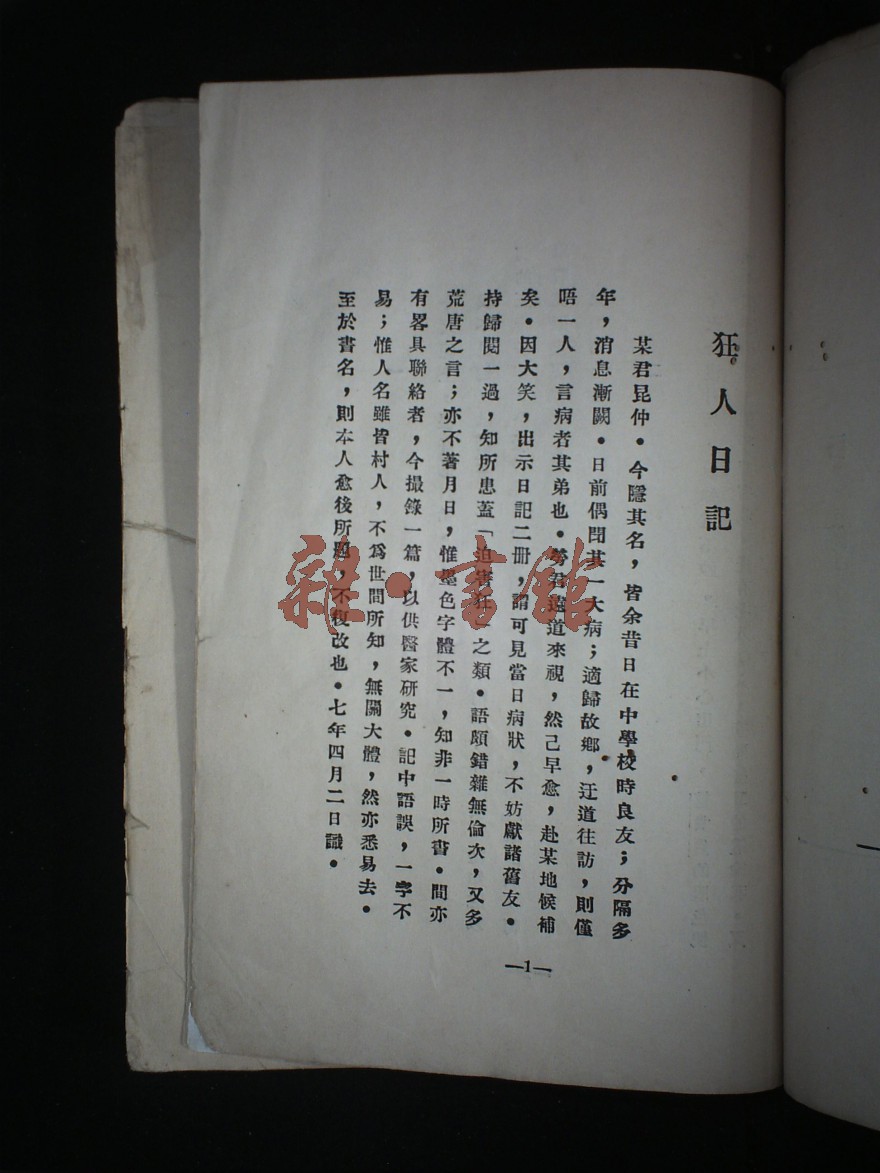 狂人日記
某君昆仲・今隱其名，皆余昔日在中學校時良友；分隔多
年，消息漸闕・日前偶聞其一大病；適歸故鄉，迂道往訪，則僅
唔一人，言病者其弟也・勞君遠道來視，然己早愈，赴某地候補
矣・因大笑，出示日記二册，謂可見當日病狀，不妨獻諸舊友・
持歸閱一過，知所患蓋「迫害狂」之類・語頗錯雜無倫次，又多
荒唐之言；亦不著月日，惟墨色字體不一，知非一時所書・間亦
有畧具聯絡者，今撮錄一篇，以供醫家研究・記中語誤，一字不
易；惟人名雖皆村人，不爲世間所知，無關大體，然亦悉易去・
至於書名，則本人愈後所題，不復改也・七年四月二日識・
—1—
雜・書館